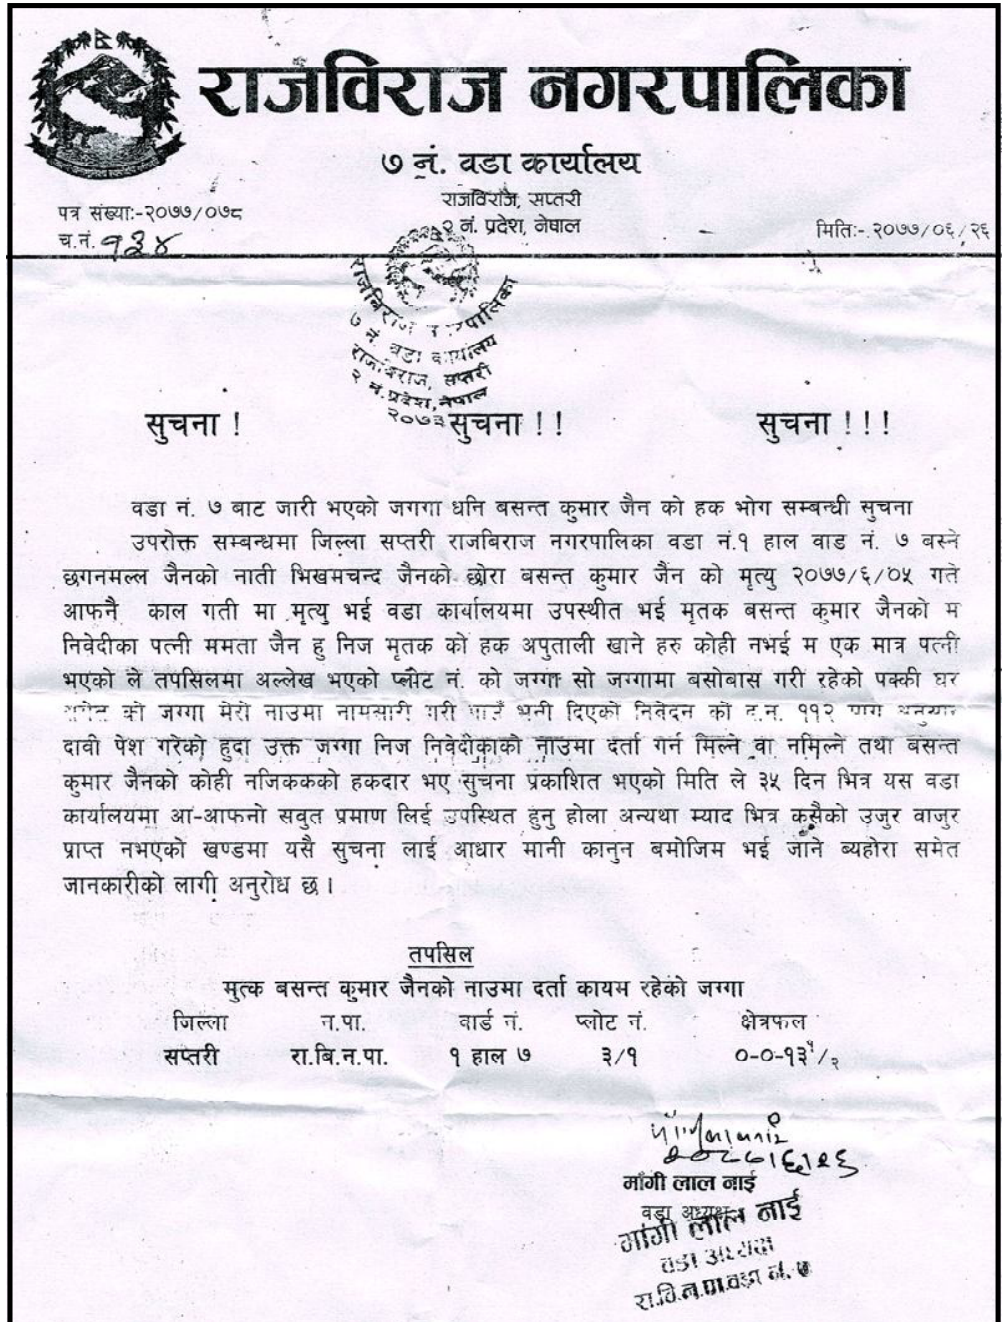 राजविराज नगरपालिका
७ नं. वडा कार्यालय
राजविराज, सप्तरी
२ नं. प्रदेश, नेपाल
पत्र संख्या:-२०७७/०७८
च.नं. १३४
मिति:-.२०७७/०६/२६
राजविराज नगरपालिका
७ नं. वडा कार्यालय
राजविराज, सप्तरी
२ नं.प्रदेश,नेपाल
२०७३
सुचना ! सुचना !! सुचना !!!
वडा नं. ७ बाट जारी भएको जगगा धनि बसन्त कुमार जैन को हक भोग सम्बन्धी सुचना
उपरोक्त सम्बन्धमा जिल्ला सप्तरी राजबिराज नगरपालिका वडा नं.१ हाल वाड नं. ७ बस्ने
छगनमल्ल जैनको नाती भिखमचन्द जैनको छोरा बसन्त कुमार जैन को मृत्यु २०७७/६/०५ गते
आफनै काल गती मा मृत्यु भई वडा कार्यालयमा उपस्थीत भई मृतक बसन्त कुमार जैनको म
निवेदीका पत्नी ममता जैन हु निज मृतक को हक अपुताली खाने हरु कोही नभई म एक मात्र पत्नी
भएको ले तपसिलमा अल्लेख भएको प्लोट नं. को जग्गा सो जग्गामा बसोबास गरी रहेको पक्की घर
को जग्गा मेरो नाउमा नामसारी गरी पाउँ भनी दिएको निवेदन को द.न. ११२
दावी पेश गरेको हुदा उक्त जग्गा निज निवेदीकाको नाउमा दर्ता गर्न मिल्ने वा नमिल्ने तथा बसन्त
कुमार जैनको कोही नजिककको हकदार भए सुचना प्रकाशित भएको मिति ले ३५ दिन भित्र यस वडा
कार्यालयमा आ-आफनो सवुत प्रमाण लिई उपस्थित हुनु होला अन्यथा म्याद भित्र कसैको उजुर वाजुर
प्राप्त नभएको खण्डमा यसै सुचना लाई आधार मानी कानुन बमोजिम भई जाने ब्यहोरा समेत
जानकारीको लागी अनुरोध छ ।
तपसिल
मुत्क बसन्त कुमार जैनको नाउमा दर्ता कायम रहेको जग्गा
जिल्ला न.पा. वार्ड नं. प्लोट नं. क्षेत्रफल
सप्तरी रा.बि.न.पा. १ हाल ७ ३/१ ०-०-१३१/२
माँगी लाल नाई
वडा अध्यक्ष
मांगी लाल नाई
वडा अध्यक्ष
रा.वि.न.पा.वडा नं. ७